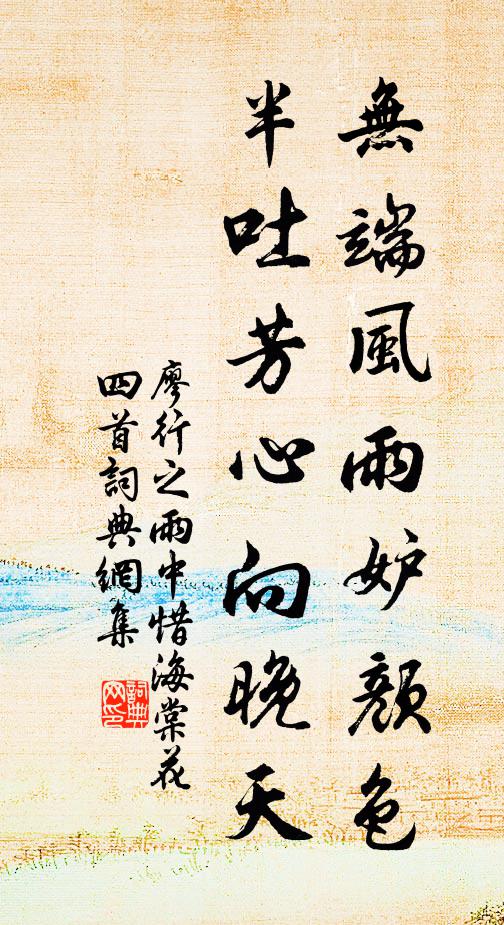 無端風雨妒顏色
半吐芳心向晚天
廖行之雨中惜海棠花
四首詞典網集
詞典
网印